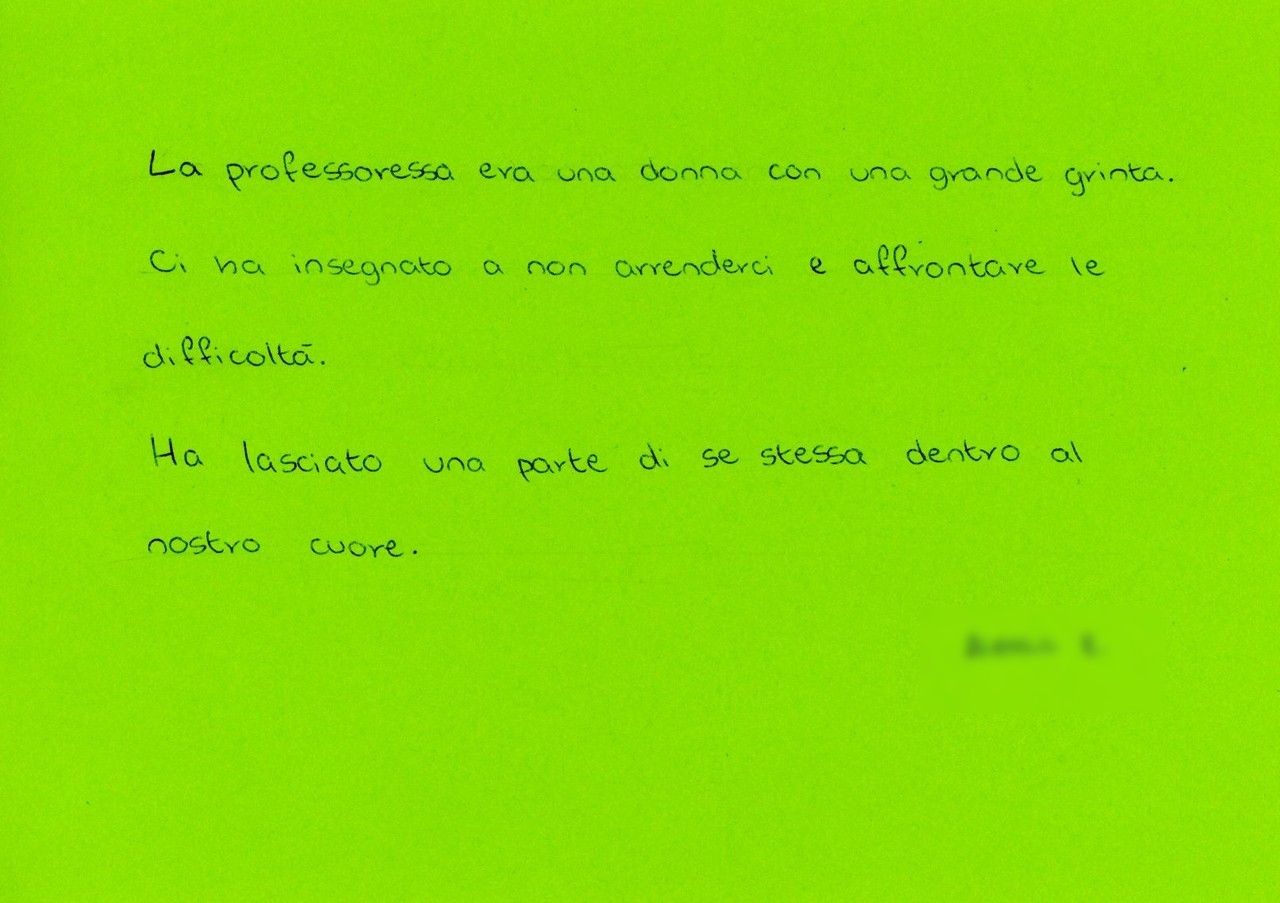 La professoressa era una donna con una grande grinta.
Ci ha insegnato a non arrenderci e affrontare le
difficoltà.
Ha lasciato una parte di se stessa dentro al
nostro cuore.